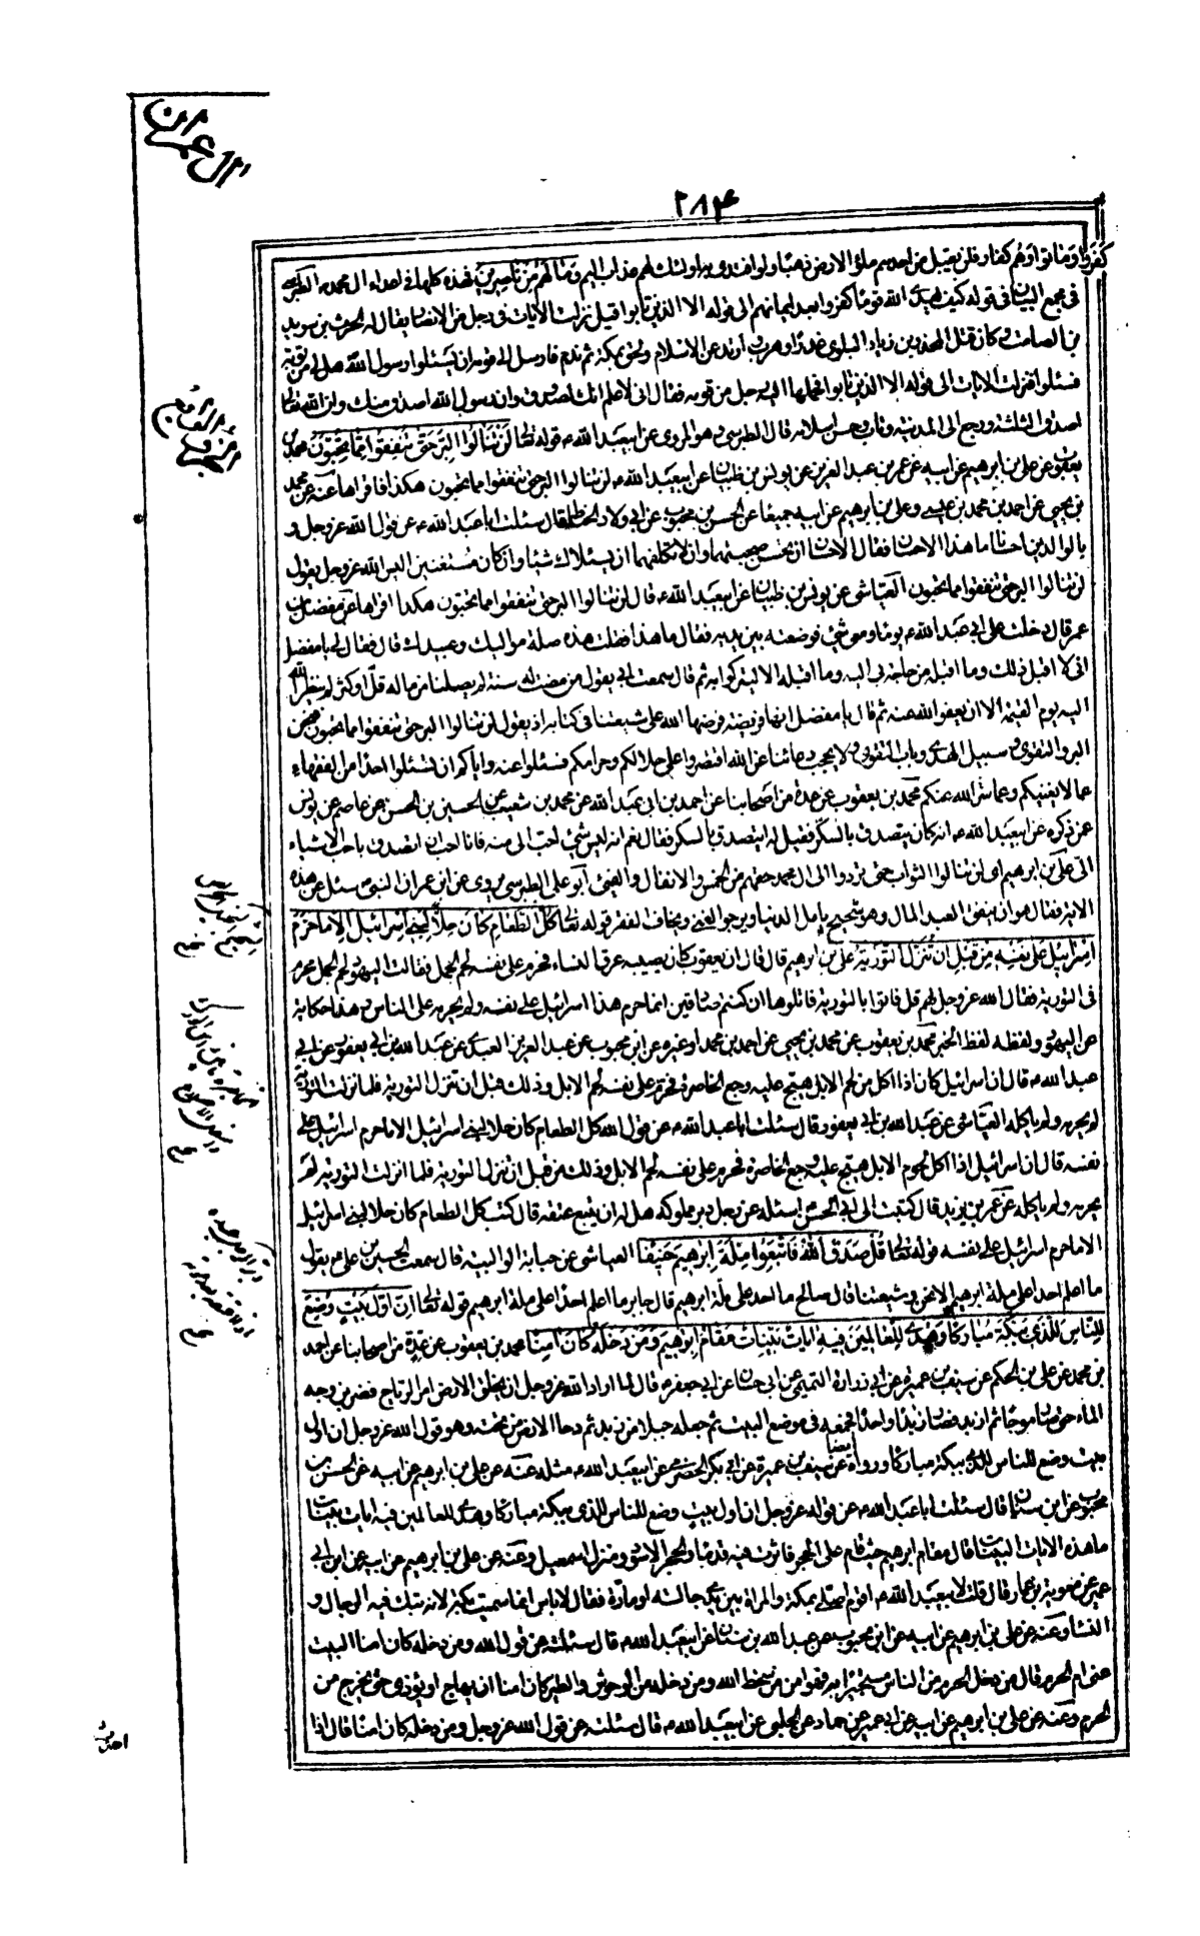 ال عمران
٢٨٤
كفروا وماتوا وهم كفار فلن يقبل من احدهم ملؤ الارض ذهبا ولو افتدى به اولئك لهم عذاب اليم وما لهم من ناصرين فهذه كلها فى اعداء ال محمد الطبرسى
فى مجمع البيان فى قوله كيف يهدى الله قوما كفروا بعد ايمانهم الى قوله الا الذين تابوا قيل نزلت الايات فى رجل من الانصار يقال له الحرث بن سويد
بن الصامت وكان قتل المحذر بن زياد البلوى غدرا وهرب وارتد عن الاسلام ولحق بمكة ثم ندم فارسل الى قومه ان يسئلوا رسول الله هل لى من توبة
فسئلوا فنزلت الايات الى قوله الا الذين تابوا فحملها اليه رجل من قومه فقال انى لاعلم انك لصدوق وان رسول الله اصدق منك وان الله تعالى
اصدق الثلثة ورجع الى المدينة وتاب وحسن اسلامه قال الطبرسى وهو المروى عن ابيعبد الله ع قوله تعالى لن تنالوا البر حتى تنفقوا مما تحبون محمد بن
يعقوب عن على بن ابرهيم عن ابيه عن عمر بن عبد العزيز عن يونس بن ظبيان عن ابيعبد الله ع لن تنالوا البر حتى تنفقوا ما تحبون هكذا فاقراها عنه عن محمد
بن يحيى عن احمد بن محمد بن عيسى وعلى بن ابرهيم عن ابيه جميعا عن الحسن بن محبوب عن ابى ولاد الحناط قال سئلت ابا عبد الله ع عن قول الله عز وجل و
بالوالدين احسانا ما هذا الاحسان فقال الاحسان ان تحسن صحبتهما وان لا تكلفهما ان يسئلاك شيئا وان كانا مستغنيين اليس الله عز وجل يقول
لن تنالوا البر حتى تنفقوا مما تحبون العياشى عن يونس بن ظبيان عن ابيعبد الله ع قال لن تنالوا البر حتى تنفقوا ما تحبون هكذا اقراها عن مفضل بن
عمر قال دخلت على ابى عبد الله ع يوما ومعى شئ فوضعته بين يديه فقال ما هذا فقلت هذه صلة مواليك وعبيدك قال فقال لى يا مفضل
انى لا اقبل ذلك وما اقبل من حاجة بى اليه وما اقبله الا ليزكوا به ثم قال سمعت ابى يقول من مضت له سنة لم يصلنا من ماله قل او كثر لم ينظر الله
اليه يوم القيمة الا ان يعفو الله عنه ثم قال يا مفضل انها فريضة فرضها الله على شيعتنا فى كتابه اذ يقول لن تنالوا البر حتى تنفقوا مما تحبون فنحن
البر والتقوى وسبيل الهدى وباب التقوى ولا يحجب دعائنا عن الله اقتصروا على حلالكم وحرامكم فسئلوا عنه واياكم ان تسئلوا احدا من الفقهاء
عما لا يعنيكم وعما ستر الله عنكم محمد بن يعقوب عن عدة من اصحابنا عن احمد بن ابى عبد الله عن محمد بن شعيب عن الحسين بن الحسن عن عاصم عن يونس
عمن ذكره عن ابيعبد الله ع انه كان يتصدق بالسكر فقيل له ايتصدق بالسكر فقال نعم انه ليس شئ احب الى منه فانا احب ان اتصدق باحب الاشياء
الى على بن ابرهيم اى لن تنالوا الثواب حتى تردوا الى ال محمد حقهم من الخمس والانفال والفئ ابو على الطبرسى روى عن ابن عمر ان النبى سئل عن هذه
الاية فقال هو ان ينفق العبد المال وهو شحيح يامل الدنيا ويرجو الغنى ويخاف الفقر قوله تعالى كل الطعام كان حلا لبنى اسرائيل الا ما حرم
اسرائيل على نفسه من قبل ان تنزل التورية على بن ابرهيم قال قال ان يعقوب كان يصيبه عرق النساء فحرم على نفسه لحم الجمل فقالت اليهود لحم الجمل محرم
فى التورية فقال الله عز وجل لهم قل فاتوا بالتورية فاتلوها ان كنتم صادقين انما حرم هذا اسرائيل على نفسه ولم يحرمه على الناس وهذا حكاية
عن اليهود ولفظه لفظ الخبر محمد بن يعقوب عن محمد بن يحيى عن احمد بن محمد او غيره عن ابن محبوب عن عبد العزيز العبدى عن عبد الله بن ابى يعفور عن ابى
عبد الله ع قال ان اسرائيل كان اذا اكل من لحم الابل هيج عليه وجع الخاصرة فحرم على نفسه لحم الابل وذلك قبل ان تنزل التورية فلما نزلت التورية
لم يحرمه ولم ياكله العياشى عن عبد الله بن ابى يعفور قال سئلت ابا عبد الله ع عن قول الله كل الطعام كان حلا لبنى اسرائيل الا ما حرم اسرائيل على
نفسه قال ان اسرائيل اذا اكل لحوم الابل هيج عليه وجع الخاصرة فحرم على نفسه لحم الابل وذلك من قبل ان تنزل التورية فلما انزلت التورية لم
يحرمه ولم ياكله عن عمر بن يزيد قال كتبت الى ابى الحسن اسئله عن رجل دبر مملوكه هل له ان يبيع عتقه قال كتب كل الطعام كان حلا لبنى اسرائيل
الا ما حرم اسرائيل على نفسه قوله تعالى قل صدق الله فاتبعوا ملة ابرهيم حنيفا العياشى عن حبابة الوالبية قال سمعت الحسين بن على ع يقول
ما اعلم احدا على ملة ابرهيم الا نحن وشيعتنا قال صالح ما احد على ملة ابرهيم قال جابر ما اعلم احدا على ملة ابرهيم قوله تعالى ان اول بيت وضع
للناس للذى ببكة مباركا وهدى للعالمين فيه ايات بينات مقام ابرهيم ومن دخله كان امنا محمد بن يعقوب عن عدة من اصحابنا عن احمد
بن محمد عن على بن الحكم عن سيف بن عميرة عن ابى زرارة التميمى عن ابى حسان عن ابى جعفر ع قال لما اراد الله عز وجل ان يخلق الارض امر الرياح فضربن وجه
الماء حتى صار موجا ثم ازبد فصار زبدا واحدا فجمعه فى موضع البيت ثم جعله جبلا من زبد ثم دحا الارض من تحته وهو قول الله عز وجل ان اول
بيت وضع للناس للذى ببكة مباركا ورواه ايضا عن سيف بن عميرة عن ابى بكر الحضرمى عن ابيعبد الله ع مثله عنه عن على بن ابرهيم عن ابيه عن الحسن بن
محبوب عن ابن سنان قال سئلت ابا عبد الله ع عن قوله عز وجل ان اول بيت وضع للناس للذى ببكة مباركا وهدى للعالمين فيه ايات بينات
ما هذه الايات البينات قال مقام ابرهيم حيث قام على الحجر فاثرت فيه قدماه والحجر الاسود ومنزل اسمعيل وعنه عن على بن ابرهيم عن ابيه عن ابن ابى
عمير عن معوية بن عمار قال قلت لابيعبد الله ع اقوم اصلى بمكة والمراة بين يدى جالسة او مارة فقال لا باس انما سميت بكة لانه تبك فيه الرجال و
النساء وعنه عن على بن ابرهيم عن ابيه عن ابن محبوب عن عبد الله بن سنان عن ابيعبد الله ع قال سئلته عن قول الله ومن دخله كان امنا البيت
عنى ام الحرم قال من دخل الحرم من الناس مستجيرا به فهو امن من سخط الله ومن دخله من الوحش والطير كان امنا ان يهاج او يؤذى حتى يخرج من
الحرم وعنه عن على بن ابرهيم عن ابيه عن ابن ابى عمير عن حماد عن الحلبى عن ابيعبد الله ع قال سئلته عن قول الله عز وجل ومن دخله كان امنا قال اذا
احدث